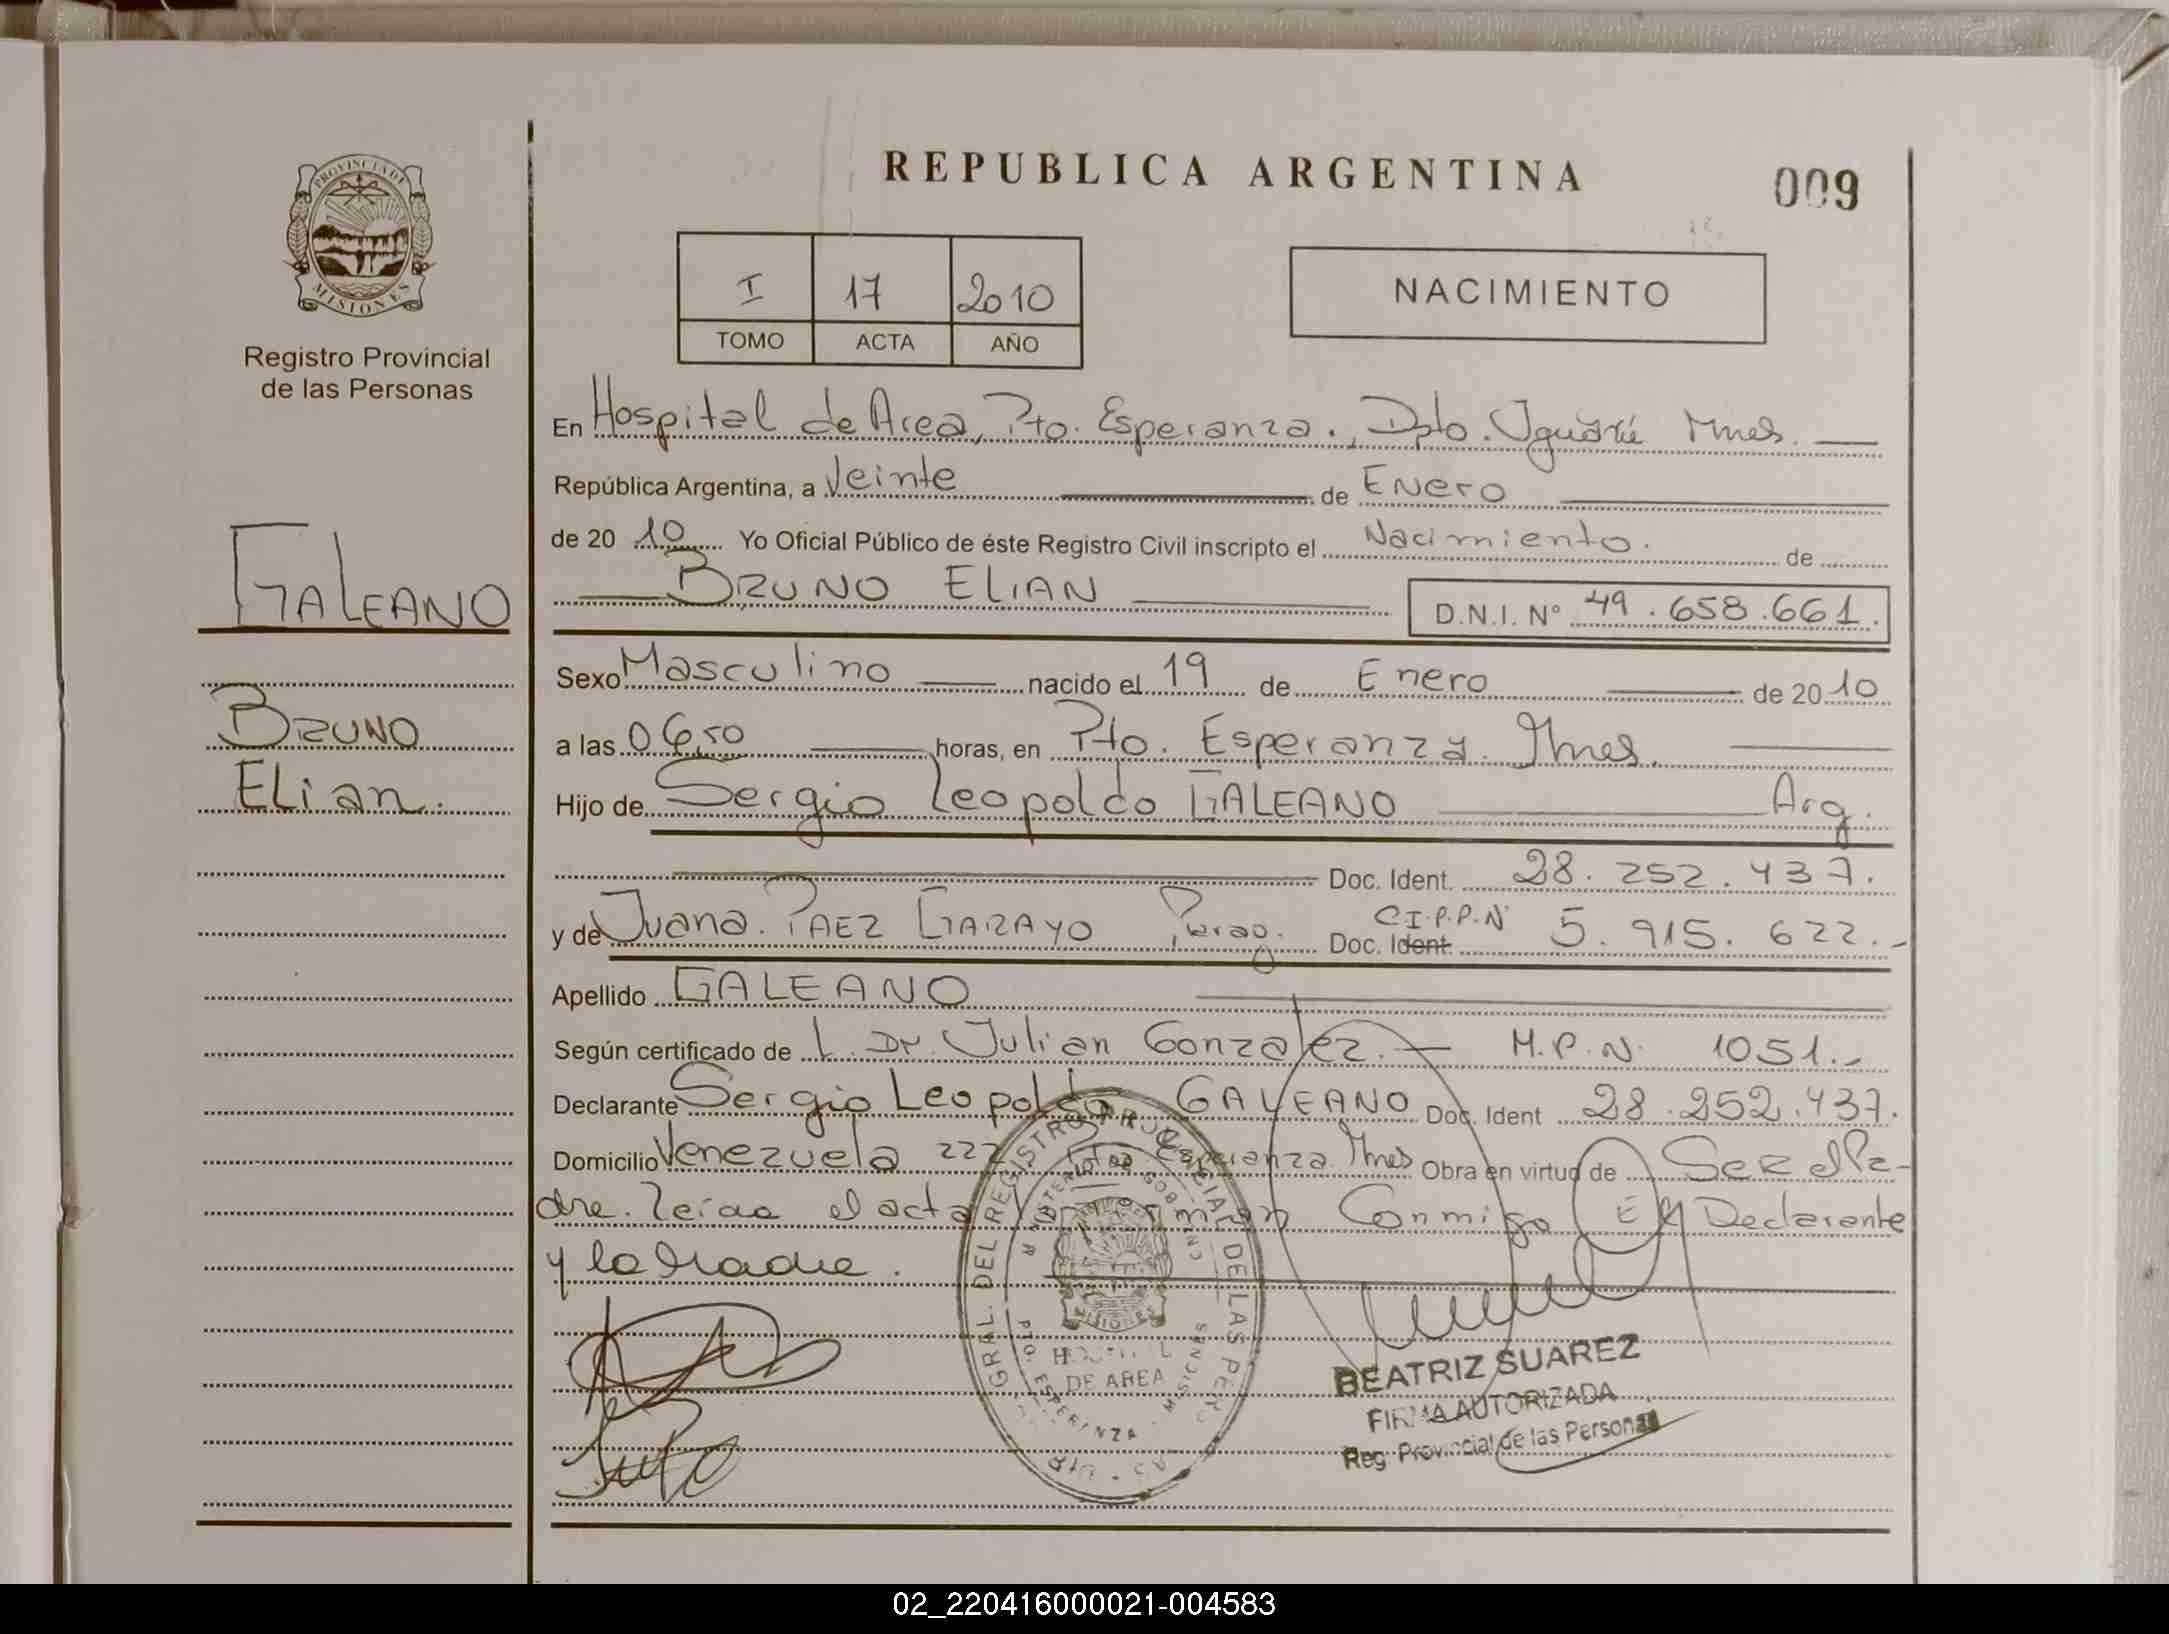 PROVINCIA DE
MISIONES
Registro Provincial
de las Personas
GALEANO
BRUNO
ELian.
REPUBLICA ARGENTINA
009
I 17 2010
TOMO ACTA AÑO
NACIMIENTO
En Hospital de Area, Pto. Esperanza., Dpto. Iguazú Mnes.
República Argentina, a Veinte de Enero
de 2010 Yo Oficial Público de éste Registro Civil inscripto el Nacimiento. de
BRUNO ELIAN D.N.I. Nº 49.658.661.
Sexo Masculino nacido el 19 de Enero de 2010
a las 06,50 horas, en Pto. Esperanza. Mnes.
Hijo de Sergio Leopoldo GALEANO Arg.
Doc. Ident. 28.252.437.
y de Juana. PAEZ GARAYO Parag. Doc. Ident. C.I.P.P.N 5.915.622.-
Apellido GALEANO
Según certificado de L. Dr. Julian Gonzalez. - M.P.N. 1051.-
Declarante Sergio Leopoldo GALEANO Doc. Ident 28.252.437.
Domicilio Venezuela 222 Pto. Esperanza. Mnes Obra en virtud de Ser el Pa-
dre. Leída el acta firman Conmigo El Declarante
y la Madre.
GRAL. DEL REGISTRO PROVINCIAL DE LAS PERS
HOSPITAL
DE AREA
PTO. ESPERANZA - MISIONES
BEATRIZ SUAREZ
FIRMA AUTORIZADA
Reg. Provincial de las Personas
02_220416000021-004583